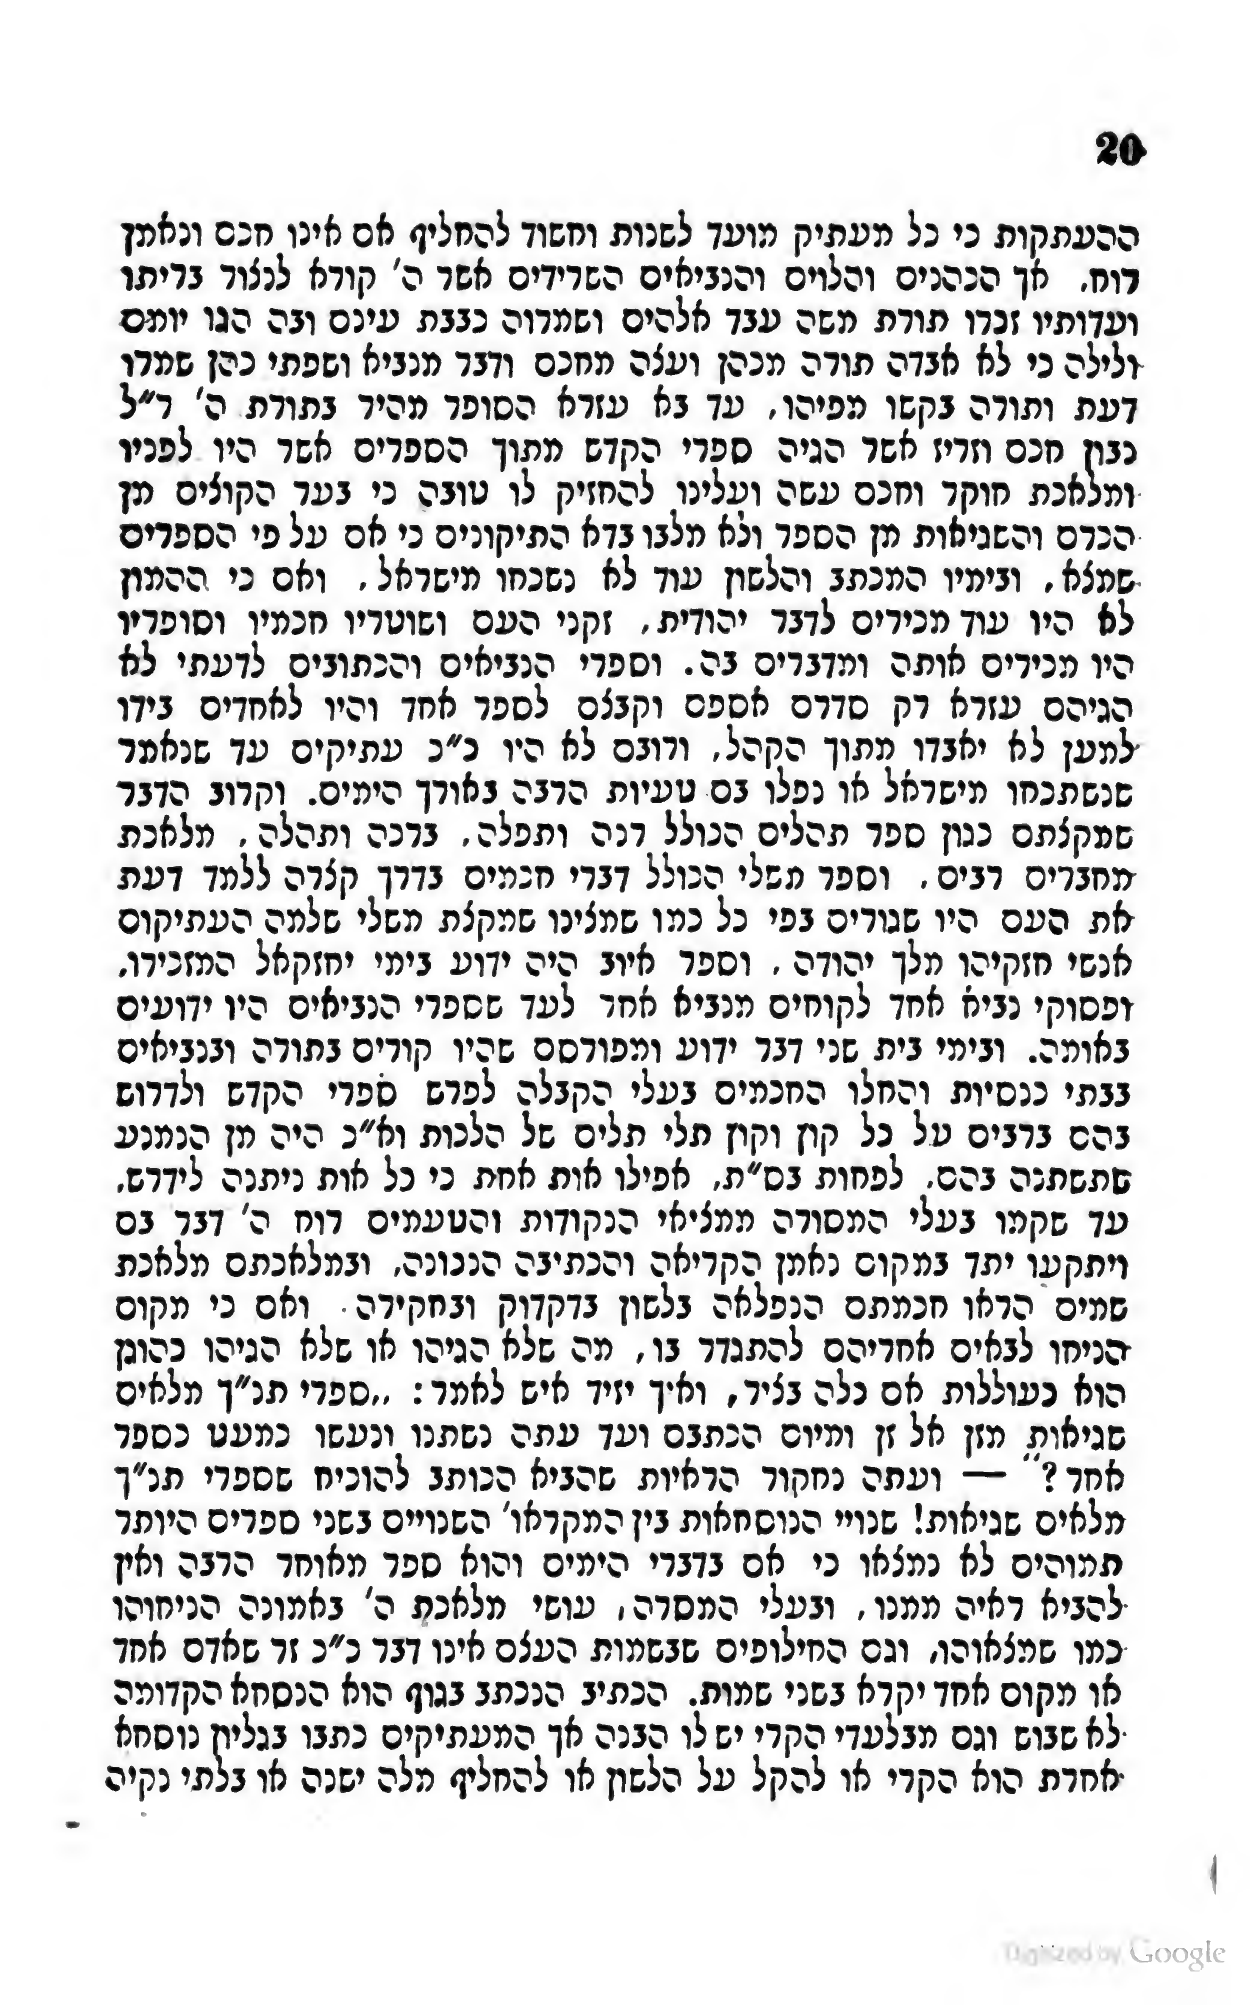 20
ההעתקות כי כל מעתיק מועד לשנות וחשוד להחליף אם אינו חכם ונאמן
רוח. אך הכהנים והלוים והנביאים השרידים אשר ה' קורא לנצור בריתו
ועדותיו זכרו תורת משה עבד אלהים ושמרוה כבבת עינם ובה הגו יומם
ולילה כי לא אבדה תורה מכהן ועצה מחכם ודבר מנביא ושפתי כהן שמרו
דעת ותורה בקשו מפיהו, עד בא עזרא הסופר מהיר בתורת ה' ר"ל
נבון חכם וזריז אשר הגיה ספרי הקדש מתוך הספרים אשר היו לפניו
ומלאכת חוקר וחכם עשה ועלינו להחזיק לו טובה כי בער הקוצים מן
הכרם והשגיאות מן הספר ולא מלבו ברא התיקונים כי אם על פי הספרים
שמצא, ובימיו המכתב והלשון עוד לא נשכחו מישראל, ואם כי ההמון
לא היו עוד מכירים לדבר יהודית, זקני העם ושוטריו חכמיו וסופריו
היו מכירים אותה ומדברים בה. וספרי הנביאים והכתובים לדעתי לא
הגיהם עזרא רק סדרם אספם וקבצם לספר אחד והיו לאחדים בידו
למען לא יאבדו מתוך הקהל, ורובם לא היו כ"כ עתיקים עד שנאמר
שנשתכחו מישראל או נפלו בם טעיות הרבה באורך הימים. וקרוב הדבר
שמקצתם כגון ספר תהלים הכולל רנה ותפלה, ברכה ותהלה, מלאכת
מחברים רבים, וספר משלי הכולל דברי חכמים בדרך קצרה ללמד דעת
את העם היו שגורים בפי כל כמו שמצינו שמקצת משלי שלמה העתיקום
אנשי חזקיהו מלך יהודה, וספר איוב היה ידוע בימי יחזקאל המזכירו,
ופסוקי נביא אחד לקוחים מנביא אחר לעד שספרי הנביאים היו ידועים
באומה. ובימי בית שני דבר ידוע ומפורסם שהיו קורים בתורה ובנביאים
בבתי כנסיות והחלו החכמים בעלי הקבלה לפרש ספרי הקדש ולדרוש
בהם ברבים על כל קוץ וקוץ תלי תלים של הלכות וא"כ היה מן הנמנע
שתשתנה בהם, לפחות בס"ת, אפילו אות אחת כי כל אות ניתנה לידרש,
עד שקמו בעלי המסורה ממציאי הנקודות והטעמים רוח ה' דבר בם
ויתקעו יתד במקום נאמן הקריאה והכתיבה הנכונה, ובמלאכתם מלאכת
שמים הראו חכמתם הנפלאה בלשון בדקדוק ובחקירה. ואם כי מקום
הניחו לבאים אחריהם להתגדר בו, מה שלא הגיהו או שלא הגיהו כהוגן
הוא כעוללות אם כלה בציר, ואיך יזיד איש לאמר: „ספרי תנ"ך מלאים
שגיאות מזן אל זן ומיום הכתבם ועד עתה נשתנו ונעשו כמעט כספר
אחר?" — ועתה נחקור הראיות שהביא הכותב להוכיח שספרי תנ"ך
מלאים שגיאות! שנויי הנוסחאות בין המקראו' השנויים בשני ספרים היותר
תמוהים לא נמצאו כי אם בדברי הימים והוא ספר מאוחר הרבה ואין
להביא ראיה ממנו, ובעלי המסרה, עושי מלאכת ה' באמונה הניחוהו
כמו שמצאוהו, וגם החילופים שבשמות העצם אינו דבר כ"כ זר שאדם אחד
או מקום אחד יקרא בשני שמות. הכתיב הנכתב בגוף הוא הנסחא הקדומה
לא שבוש וגם מבלעדי הקרי יש לו הבנה אך המעתיקים כתבו בגליון נוסחא
אחרת הוא הקרי או להקל על הלשון או להחליף מלה ישנה או בלתי נקיה
Digitized by Google